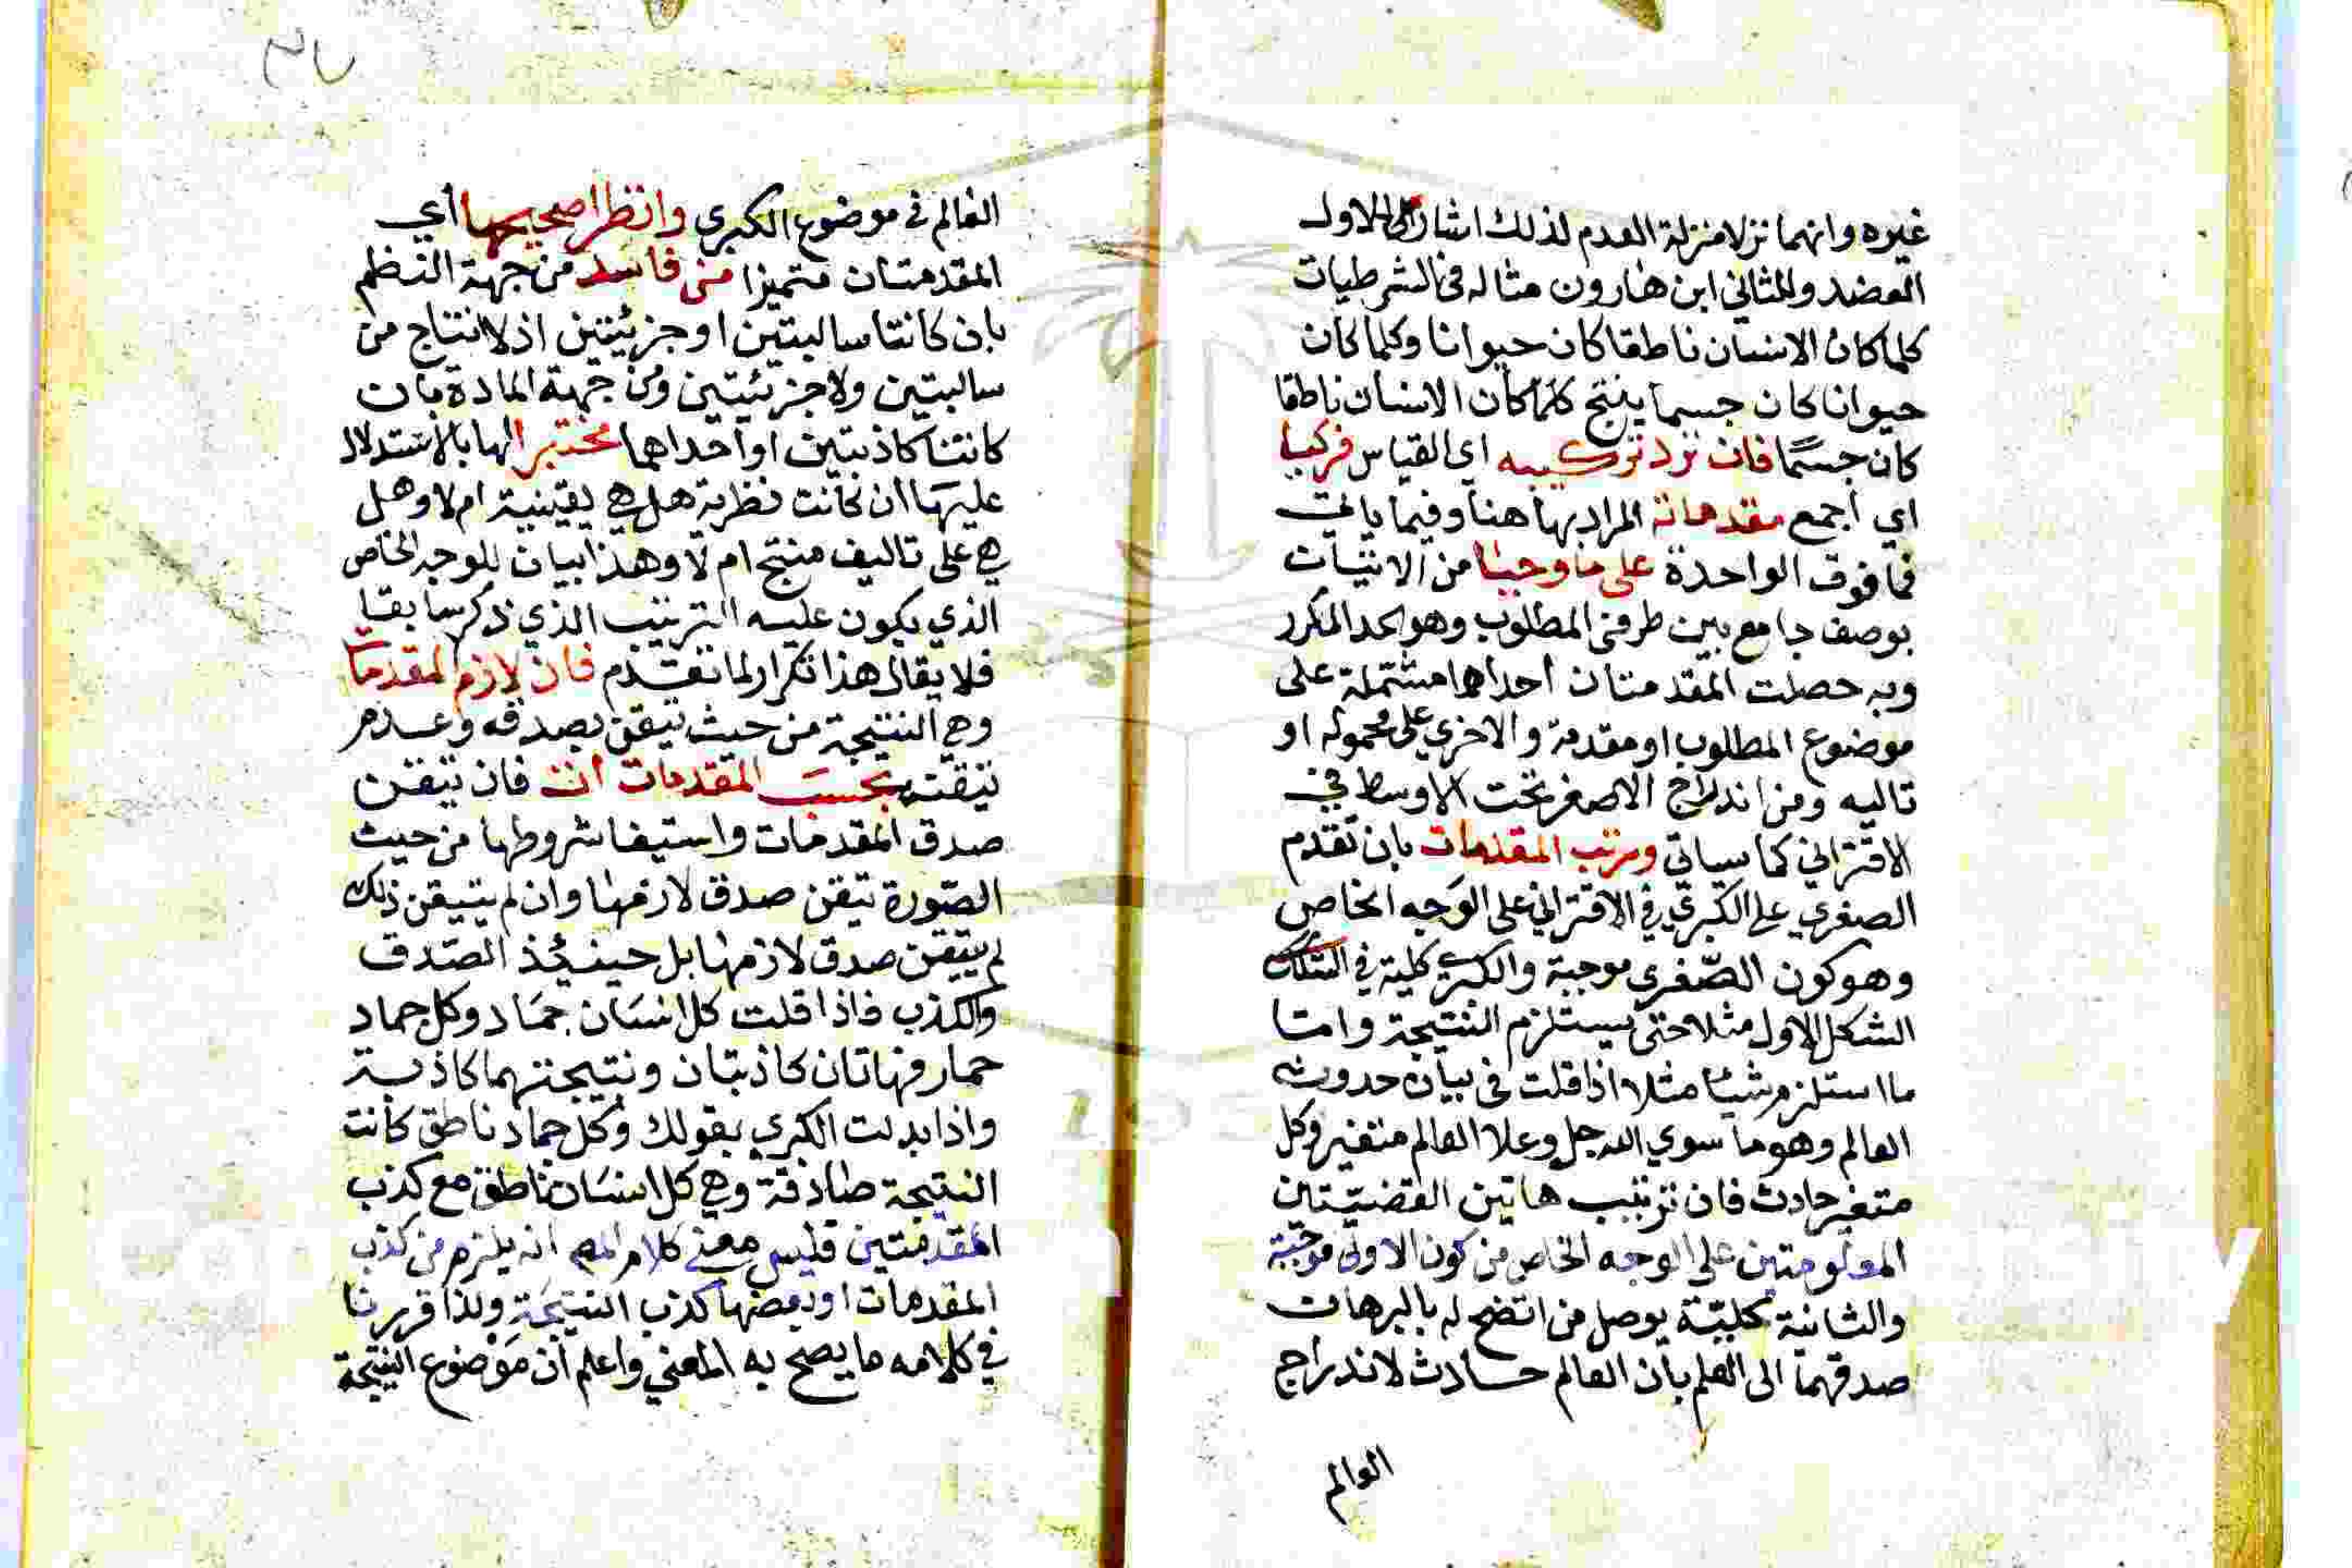 غيره وانهما نزلا منزلة العدم لذلك اشار الى الاول
العضد وللثاني ابن هارون مثاله في الشرطيات
كلما كان الانسان ناطقا كان حيوانا وكلما كان
حيوانا كان جسما ينتج كلما كان الانسان ناطقا
كان جسمًا فان ترد تركيبه اي القياس فركبا
اي اجمع مقدماته المراد بها هنا وفيما ياتي
فما فوق الواحدة على ما وجبا من الاتيان
بوصف جامع بين طرفي المطلوب وهو الحد المكرر
وبه حصلت المقدمتان احداهما مشتملة على
موضوع المطلوب او مقدمة والاخري على محموله او
تاليه ومن اندراج الاصغر تحت الاوسط في
الاقتراني كما سياتي ورتب المقدمات بان تقدم
الصغري على الكبري في الاقتراني على الوجه الخاص
وهو كون الصّغري موجبة والكبري كلية في الشكل
الشكل الاول مثلا حتى يستلزم النتيجة وامتا
ما استلزم شيئا مثلا اذا قلت في بيان حدوث
العالم وهو ما سوي الله جل وعلا العالم متغير وكل
متغير حادث فان ترتيب هاتين القضيتين
المعلومتين على الوجه الخاص من كون الاولى موجبة
والثانية كليّة يوصل من اتضح له بالبرهان
صدقهما الى العلم بان العالم حادث لاندراج
العالم
العالم في موضوع الكبري وانظرا صحيحها أي
المقدمتان متميزا من فاسد من جهة النظم
بان كانتا سالبتين او جزئيتين اذ لا انتاج من
سالبتين ولا جزئيتين ومن جهة المادة بان
كانتا كاذبتين او احداهما مختبرا لها بالاستدلال
عليها ان كانت نظرية هل هي يقينية ام لا وهل
هي على تاليف منتج ام لا وهذا بيان للوجه الخاص
الذي يكون عليه الترتيب الذي ذكر سابقا
فلا يقال هذا تكرار لما تقدم فان لازم المقدمات
وهي النتيجة من حيث تيقن بصدقه وعدم
تيقنه بحسب المقدمات أت فان تيقن
صدق المقدمات واستيفا شروطها من حيث
الصّورة تيقن صدق لازمها وان لم يتيقن ذلك
لم يتيقن صدق لازمها بل حينئذ الصّدق
والكذب فاذا قلت كل انسَان جمَاد وكل جماد
حمار فهاتان كاذبتان ونتيجتهما كاذبة
واذا بدلت الكبري بقولك وكل جماد ناطق كانت
النتيجة صادقة وهي كل انسَان ناطق مع كذب
المقدمتين فليس معنى كلام المص انه يلزم من كذب
المقدمات او بعضها كذب النتيجة ولذا قررنا
في كلامه ما يصح به المعني واعلم ان موضوع النتيجة